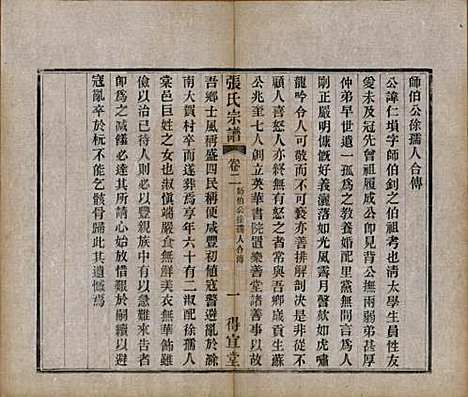 師伯公徐孺人合傳
公諱仁塤字師伯釗之伯祖考也清太學生員性友
愛未及冠先曾祖履咸公即見背公撫兩弱弟甚厚
仲弟早世遺一孤爲之教養婚配里黨無閒言公性
剛正嚴明胸無宿物坦如光風霽月聲欬如虎嘯
龍吟令人可敬而不可褻也亦善排解剖決是非不
顧人喜怒人亦終無有怒之者常與吾鄉歲貢生蘇
公兆奎七人創立英華書院置樂善堂諸善事以故
張氏宗譜
卷二
師伯公徐孺人合傳
一
得宜堂
吾鄉士風稱盛四民稱便咸豐初値寇警避亂於滁
南大賀村卒即葬於其處享年六十有二淑配徐孺人
棠邑巨姓之女也淑愼端嚴食無鮮美衣無華飾雖
儉以治己必以豐親族中有以
師爲之減饈必達其所請心始放惜艱於嗣續以避
寇亂卒於杬不能乞骸骨歸此其遺憾焉